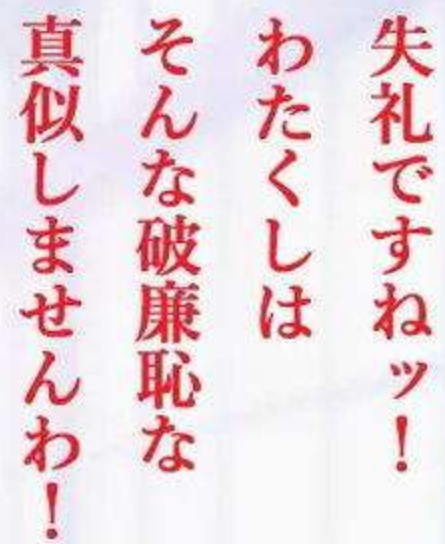 失礼ですねッ！
わたくしは
そんな破廉恥な
真似しませんわ！